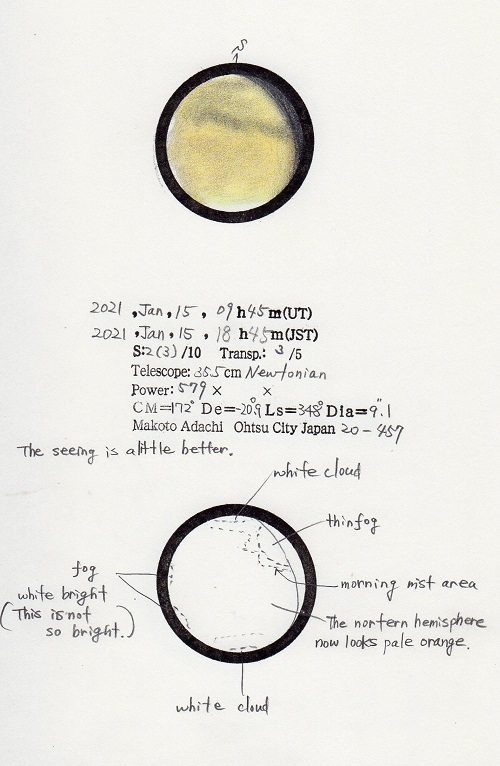 S
2021 , Jan , 15 , 09 h 45 m (UT)
2021 , Jan , 15 , 18 h 45 m (JST)
S: 2(3) /10 Transp.: 3 /5
Telescope: 35.5 cm Newtonian
Power: 579 × ×
CM=172° De=-20°.9 Ls=348° Dia=9".1
Makoto Adachi Ohtsu City Japan 20-457
The seeing is a little better.
white cloud
thin fog
fog
morning mist area
white bright
(This is not
so bright.)
The nortern hemisphere
now looks pale orange.
white cloud